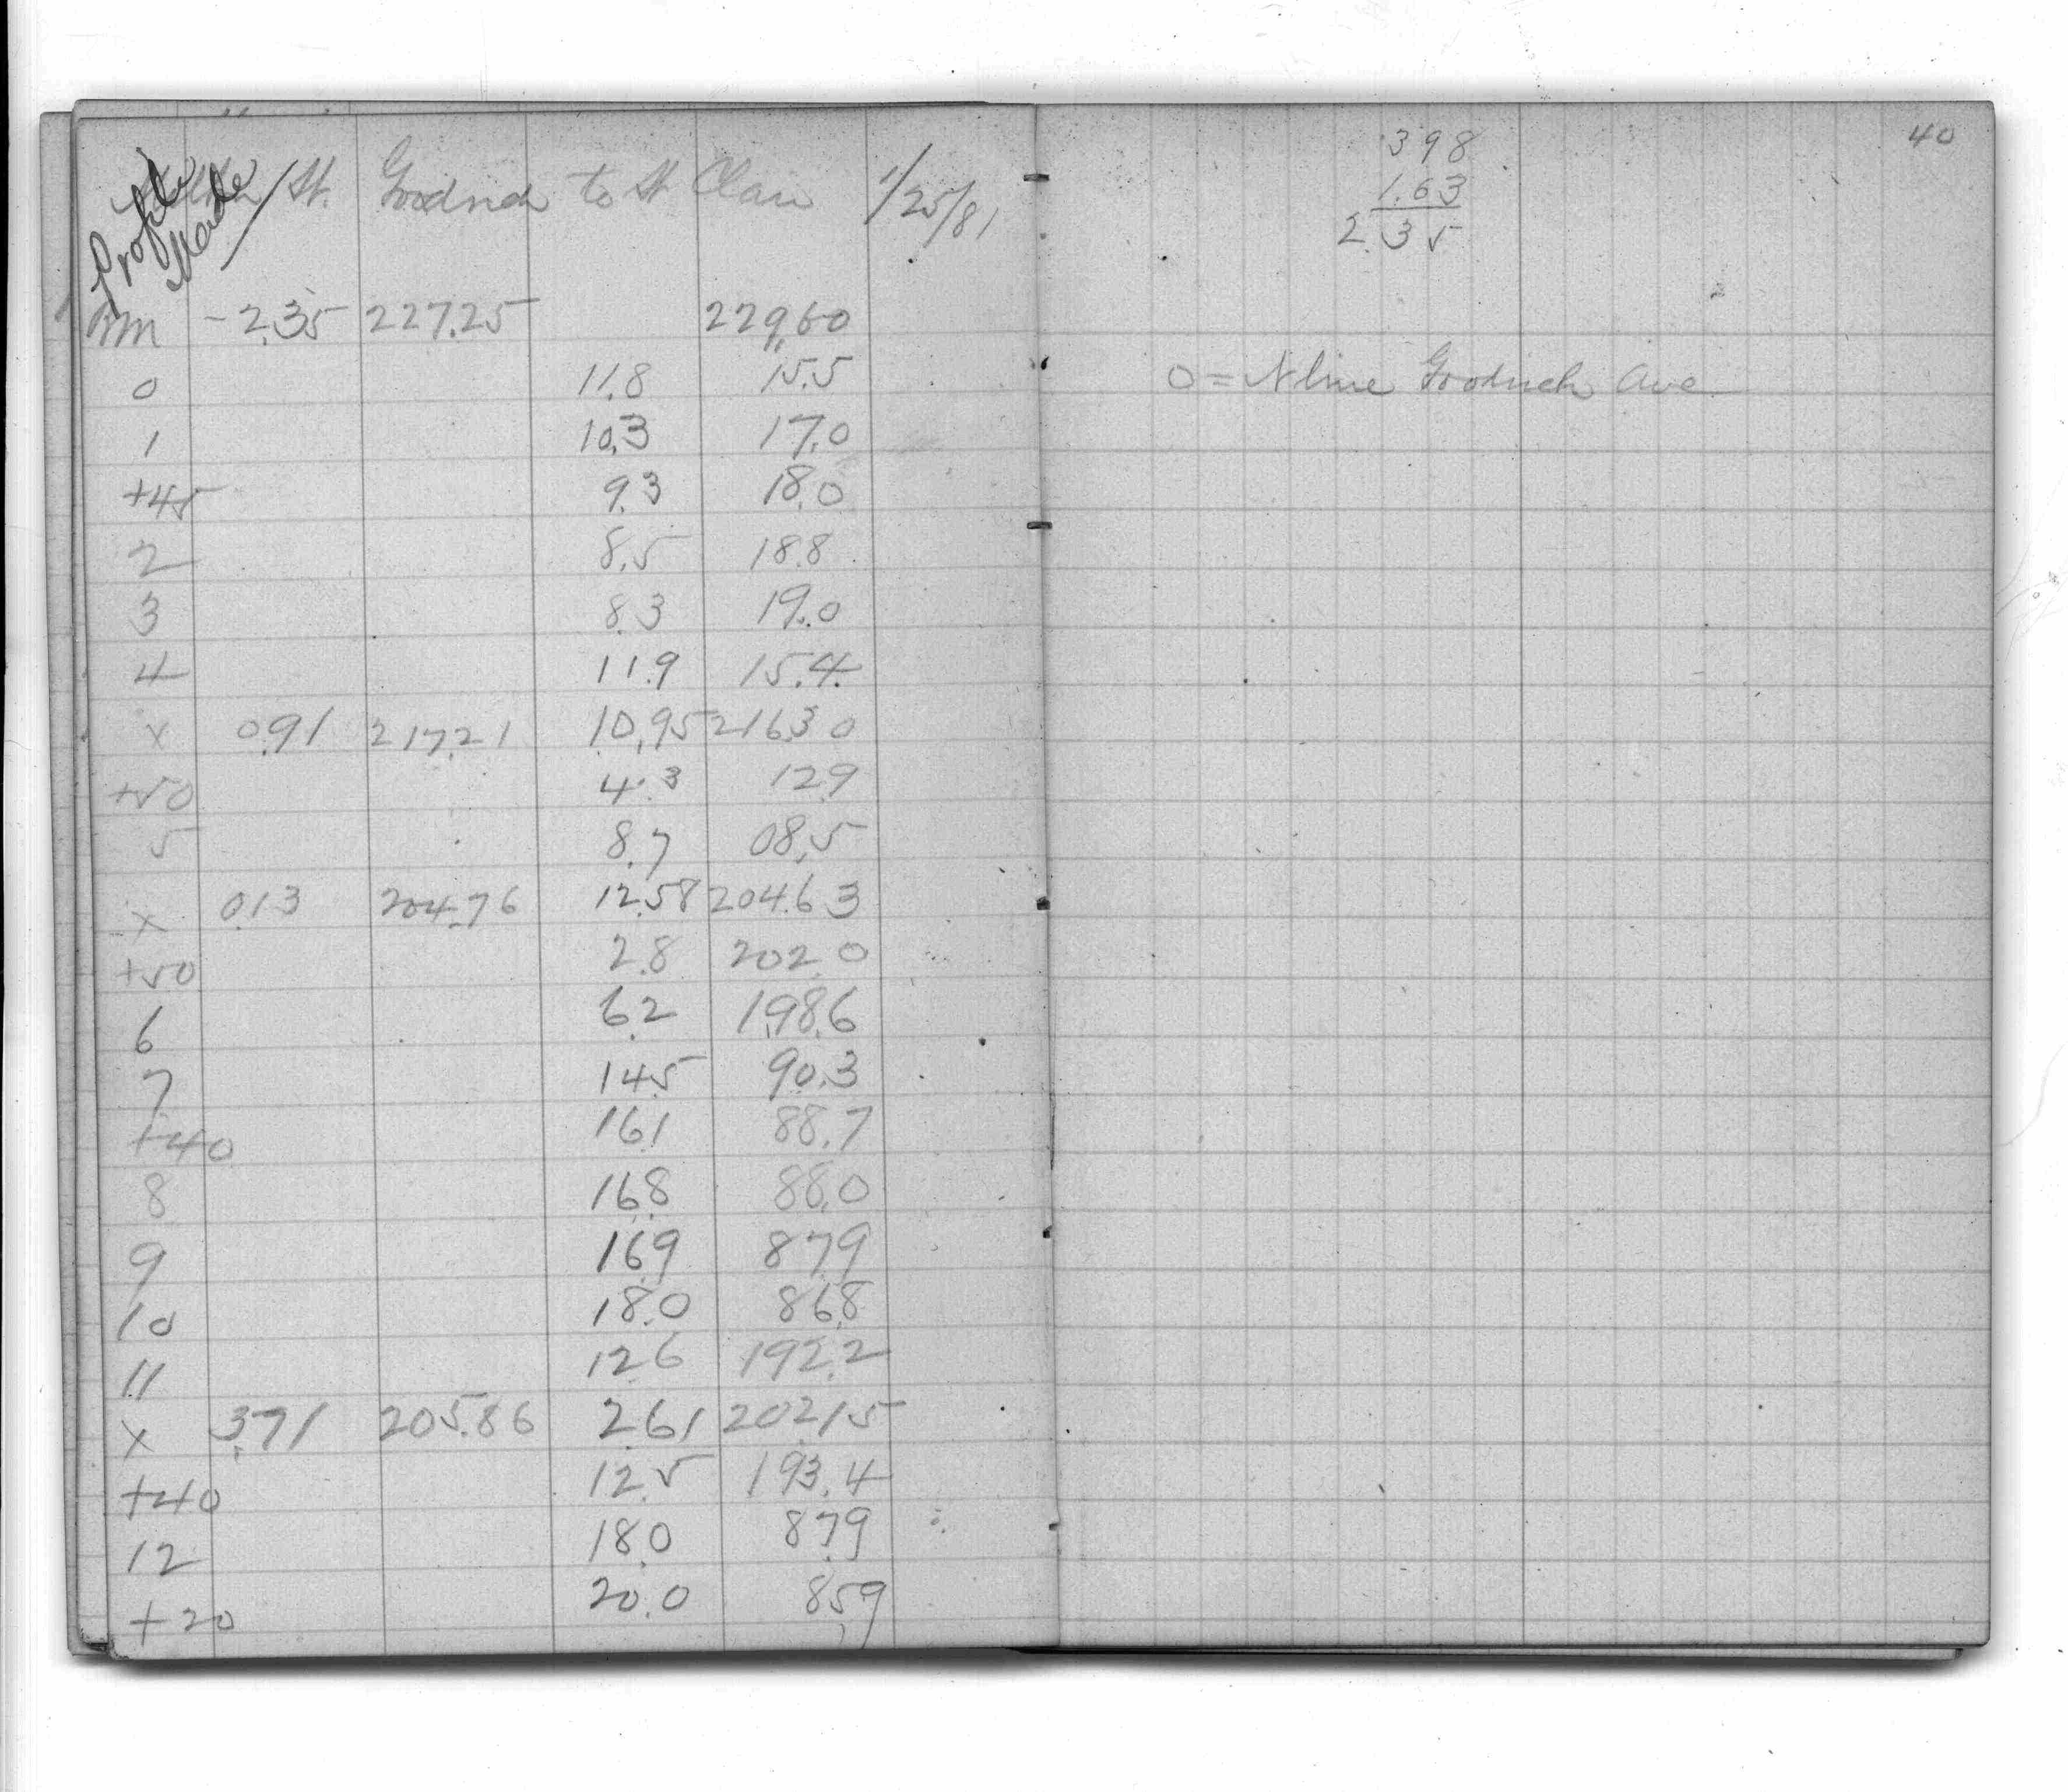 Profile
Made
St. Goodrich to St Clair 1/25/81
BM -2.35 227.25 229.60
0 11.8 15.5
1 10.3 17.0
+45 9.3 18.0
2 8.5 18.8
3 8.3 19.0
4 11.9 15.4
x 0.91 217.21 10.95 216.30
+50 4.3 12.9
5 8.7 08.5
x 0.13 204.76 12.58 204.63
+50 2.8 202.0
6 6.2 198.6
7 14.5 90.3
+40 16.1 88.7
8 16.8 88.0
9 16.9 87.9
10 18.0 86.8
11 12.6 192.2
x 3.71 205.86 2.61 202.15
+40 12.5 193.4
12 18.0 87.9
+20 20.0 85.9
40
398
1.63
2.35
0 = N line Goodrich Ave